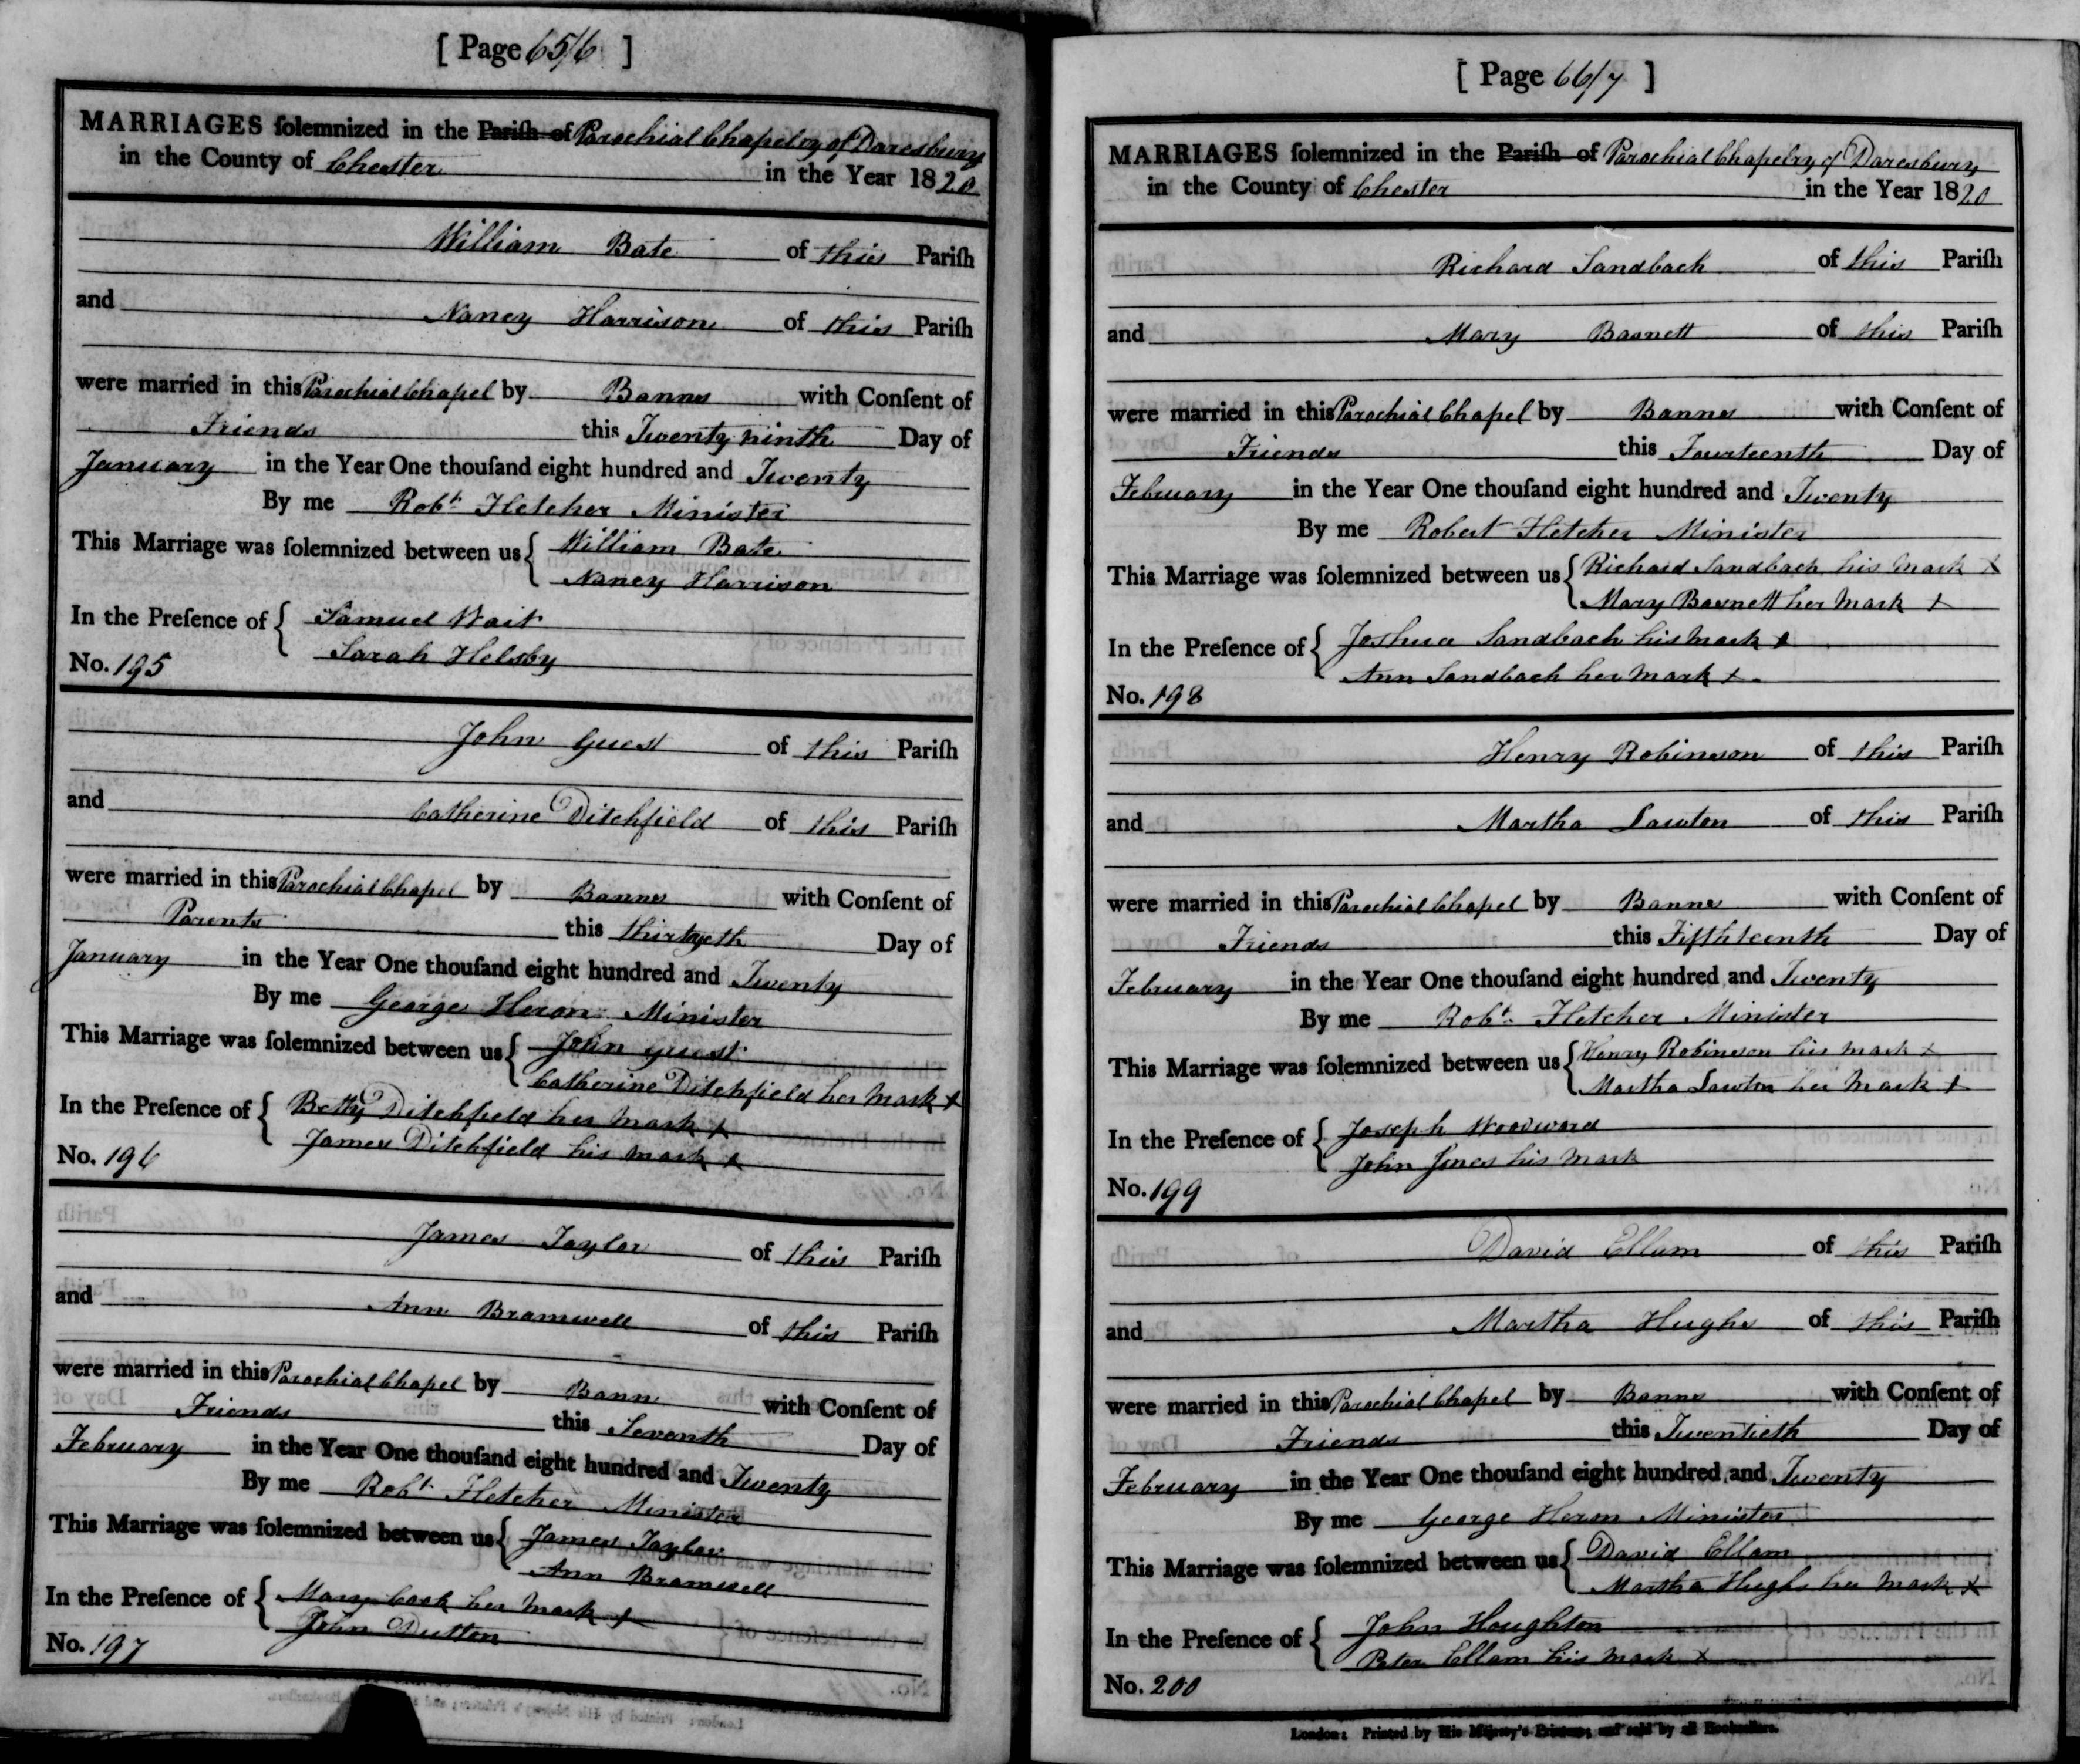 [ Page 65/6 ]
MARRIAGES ſolemnized in the Pariſh of Parochial Chapelry of Daresbury
in the County of Chester in the Year 1820
William Bate of this Pariſh
and
Nancy Harrison of this Pariſh
were married in this Parochial Chapel by Banns with Conſent of
Friends this Twenty ninth Day of
January in the Year One thouſand eight hundred and Twenty
By me Robt. Fletcher Minister
This Marriage was ſolemnized between us { William Bate
Nancy Harrison
In the Preſence of { Samuel Wait
Sarah Helsby
No. 195
John Guest of this Pariſh
and Catherine Ditchfield of this Pariſh
were married in this Parochial Chapel by Banns with Conſent of
Parents this thirtyeth Day of
January in the Year One thouſand eight hundred and Twenty
By me George Heron Minister
This Marriage was ſolemnized between us { John Guest
Catherine Ditchfield her Mark x
In the Preſence of { Betty Ditchfield her mark x
James Ditchfield his mark x
No. 196
James Taylor of this Pariſh
and Ann Bramwell of this Pariſh
were married in this Parochial Chapel by Bann with Conſent of
Friends this Seventh Day of
February in the Year One thouſand eight hundred and Twenty
By me Robt Fletcher Minister
This Marriage was ſolemnized between us { James Taylor
Ann Bramwell
In the Preſence of { Mary Cook her Mark x
John Dutton
No. 197
[ Page 66/7 ]
MARRIAGES ſolemnized in the Pariſh of Parochial Chapelry of Daresbury
in the County of Chester in the Year 1820
Richard Sandbach of this Pariſh
and Mary Basnett of this Pariſh
were married in this Parochial Chapel by Banns with Conſent of
Friends this Fourteenth Day of
February in the Year One thouſand eight hundred and Twenty
By me Robert Fletcher Minister
This Marriage was ſolemnized between us { Richard Sandbach his mark x
Mary Basnett her Mark x
In the Preſence of { Joshua Sandbach his Mark x
Ann Sandbach her Mark x
No. 198
Henry Robinson of this Pariſh
and Martha Lawton of this Pariſh
were married in this Parochial Chapel by Banns with Conſent of
Friends this Fifthteenth Day of
February in the Year One thouſand eight hundred and Twenty
By me Robt. Fletcher Minister
This Marriage was ſolemnized between us { Henry Robinson his mark x
Martha Lawton her Mark x
In the Preſence of { Joseph Woodward
John Jones his Mark
No. 199
David Ellam of this Pariſh
and Martha Hughs of this Pariſh
were married in this Parochial Chapel by Banns with Conſent of
Friends this Twentieth Day of
February in the Year One thouſand eight hundred and Twenty
By me George Heron Minister
This Marriage was ſolemnized between us { David Ellam
Martha Hughs her Mark x
In the Preſence of { John Houghton
Peter Ellam his Mark x
No. 200
London: Printed by His Majesty's Printers; and sold by all Booksellers.